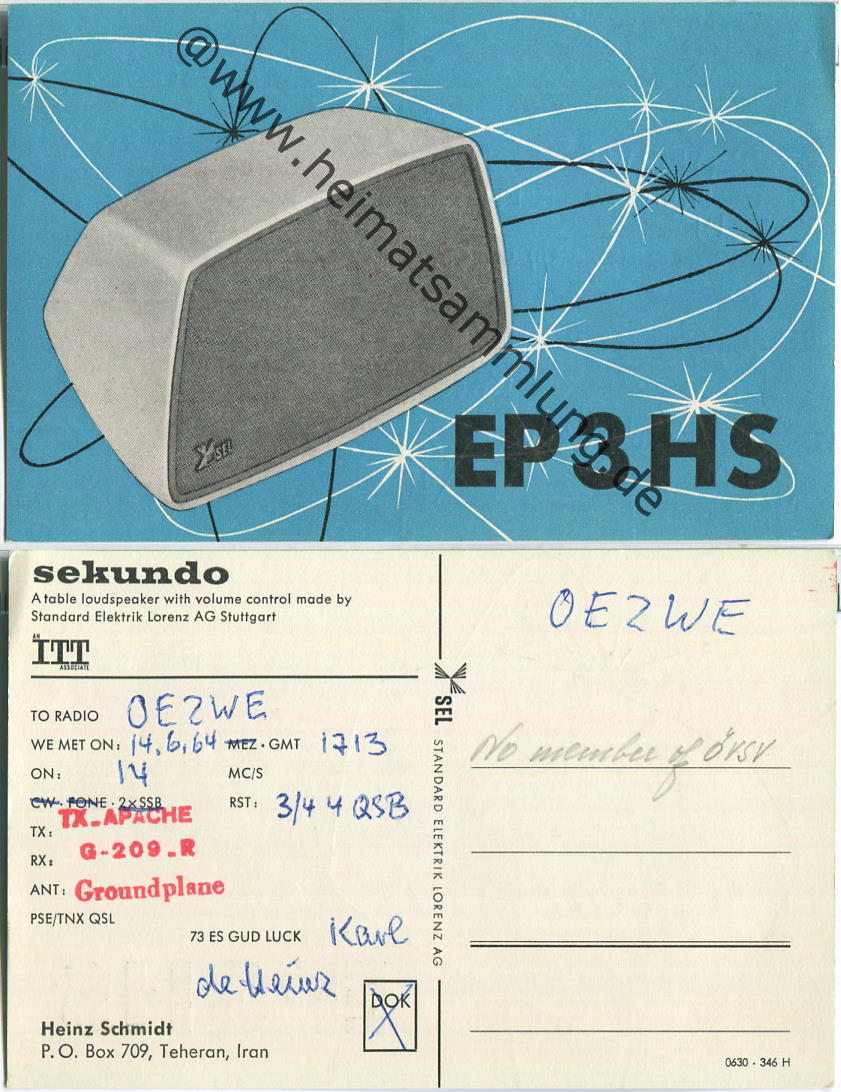 @www.heimatsammlung.de
SEL
EP3HS
sekundo
A table loudspeaker with volume control made by
Standard Elektrik Lorenz AG Stuttgart
AN
ITT
ASSOCIATE
TO RADIO OE2WE
WE MET ON: 14.6.64 MEZ · GMT 1713
ON: 14 MC/S
CW · FONE · 2xSSB RST: 3/4 4 QSB
TX: TX-APACHE
RX: G-209-R
ANT: Groundplane
PSE/TNX QSL
73 ES GUD LUCK Karl
de Heinz
DOK
Heinz Schmidt
P. O. Box 709, Teheran, Iran
SEL STANDARD ELEKTRIK LORENZ AG
OE2WE
No member of ÖVSV
0630 · 346 H